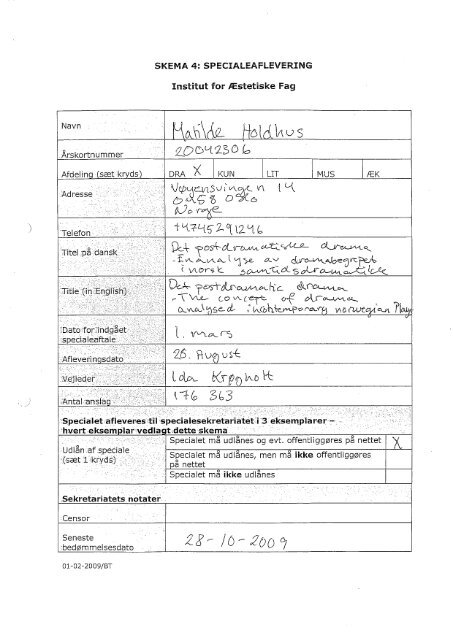 SKEMA 4: SPECIALEAFLEVERING
Institut for Æstetiske Fag
Navn Matilde Holdhus
Årskortnummer 20042306
Afdeling (sæt kryds) DRA X KUN LIT MUS ÆK
Adresse Vøyensvingen 14
0458 Oslo
Norge
Telefon +4745291246
Titel på dansk Det postdramatiske drama
- En analyse av dramabegrepet
i norsk samtidsdramatikk
Title (in English) Det postdramatic drama
- The concept of drama
analysed in contemporary norwegian Plays
Dato for indgået
specialeaftale 1. mars
Afleveringsdato 28. August
Vejleder Ida Krøgholt
Antal anslag 176 363
Specialet afleveres til specialesekretariatet i 3 eksemplarer –
hvert eksemplar vedlagt dette skema
Udlån af speciale
(sæt 1 kryds)
Specialet må udlånes og evt. offentliggøres på nettet X
Specialet må udlånes, men må ikke offentliggøres
på nettet
Specialet må ikke udlånes
Sekretariatets notater
Censor
Seneste
bedømmelsesdato 28-10-2009
01-02-2009/BT